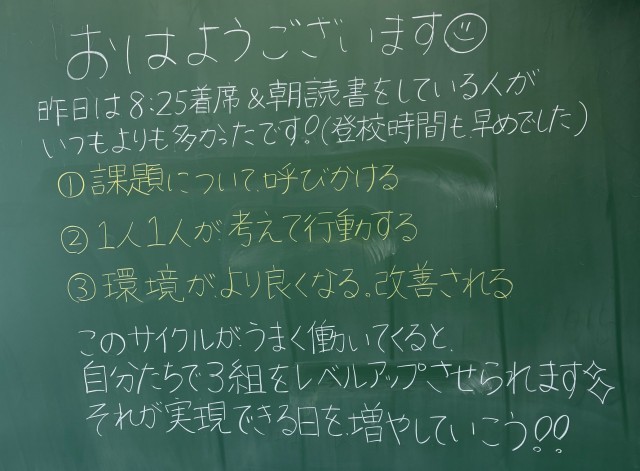 おはようございます☺
昨日は8:25着席&朝読書をしている人が
いつもよりも多かったです!(登校時間も早めでした)
①課題について呼びかける
②1人1人が考えて行動する
③環境がより良くなる。改善される
このサイクルがうまく働いてくると、
自分たちで3組をレベルアップさせられます✨
それが実現できる日を増やしていこう!!